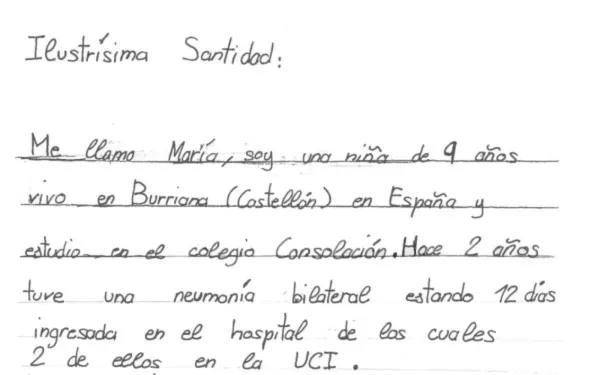 Ilustrísima Santidad:
Me llamo María, soy una niña de 9 años
vivo en Burriana (Castellón) en España y
estudio en el colegio Consolación. Hace 2 años
tuve una neumonía bilateral estando 12 días
ingresada en el hospital de los cuales
2 de ellos en la UCI.